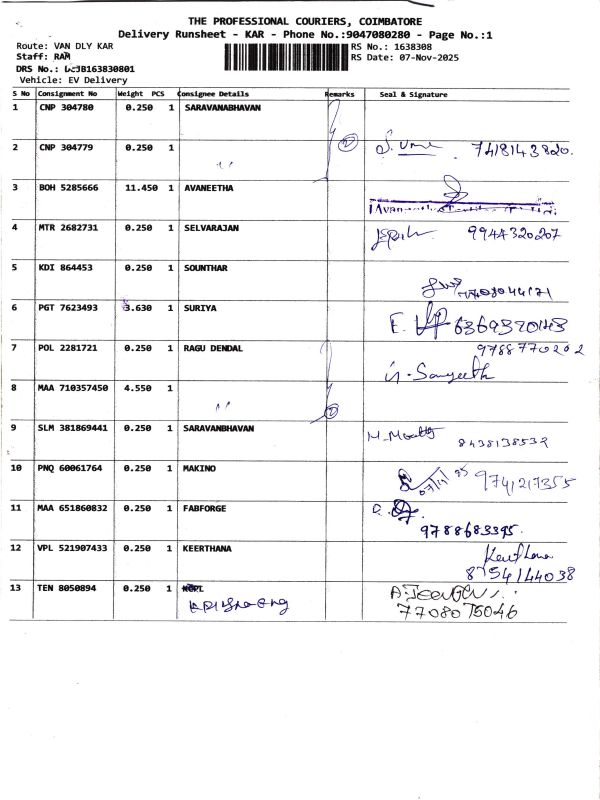 THE PROFESSIONAL COURIERS, COIMBATORE
Delivery Runsheet - KAR - Phone No.:9047080280 - Page No.:1
Route: VAN DLY KAR RS No.: 1638308
Staff: RAM RS Date: 07-Nov-2025
DRS No.: 163830801
Vehicle: EV Delivery
S No Consignment No Weight PCS Consignee Details Remarks Seal & Signature
1 CNP 304780 0.250 1 SARAVANABHAVAN
2 CNP 304779 0.250 1 " ② S. Uma 7418143820.
3 BOH 5285666 11.450 1 AVANEETHA
4 MTR 2682731 0.250 1 SELVARAJAN 9944320207
5 KDI 864453 0.250 1 SOUNTHAR
6 PGT 7623493 3.630 1 SURIYA E. 6369320143
7 POL 2281721 0.250 1 RAGU DENDAL 9788770202
G. Sangeeth
8 MAA 710357450 4.550 1 " ②
9 SLM 381869441 0.250 1 SARAVANBHAVAN 8438138532
10 PNQ 60061764 0.250 1 MAKINO 07/11/25 9741217355
11 MAA 651860832 0.250 1 FABFORGE
9788683395.
12 VPL 521907433 0.250 1 KEERTHANA Keerthana
8754144038
13 TEN 8050894 0.250 1
7708075046